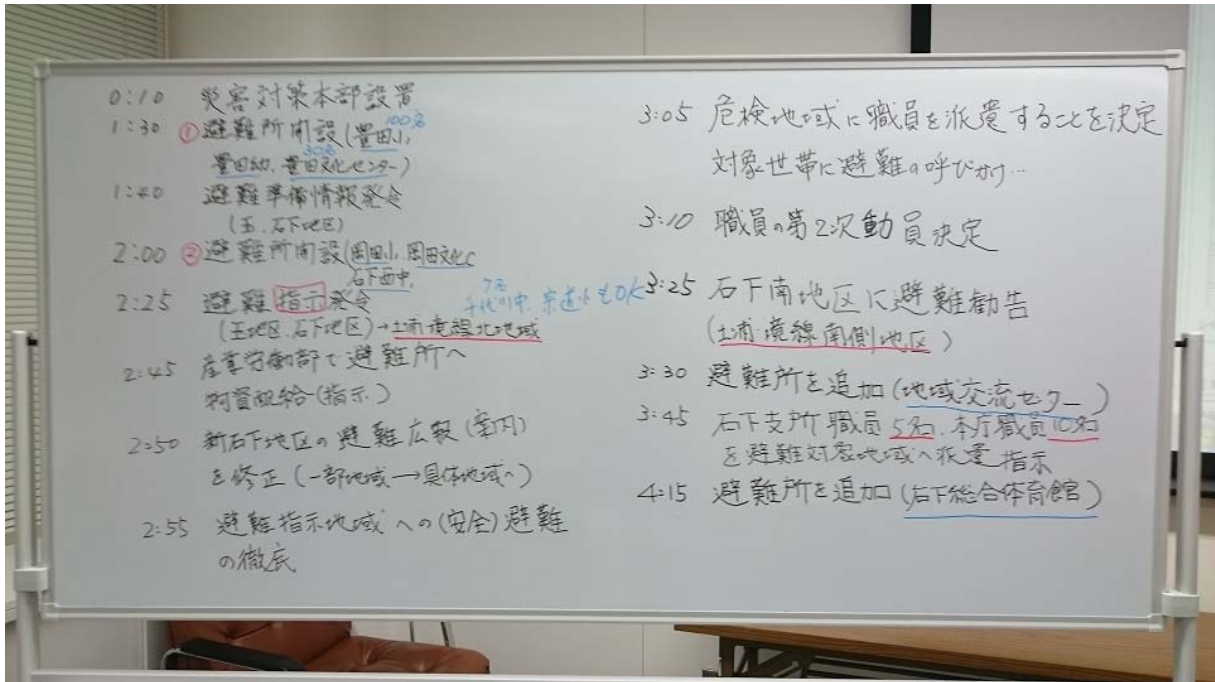 0:10 災害対策本部設置
1:30 ①避難所開設(豊田小、
100名
豊田幼、豊田文化センター)
30名
1:40 避難準備情報発令
(玉、石下地区)
2:00 ②避難所開設(岡田小、岡田文化C
石下西中、
2:25 避難指示発令
7名
千代川中、宗道小もOK
(玉地区、石下地区)→土浦境線北地域
2:45 産業労働部で避難所へ
物資配給(指示)
2:50 新石下地区の避難広報(案内)
を修正(一部地域→具体地域へ)
2:55 避難指示地域への(安全)避難
の徹底
3:05 危険地域に職員を派遣することを決定
対象世帯に避難の呼びかけ…
3:10 職員の第2次動員決定
3:25 石下南地区に避難勧告
(土浦境線南側地区)
3:30 避難所を追加(地域交流センター)
3:45 石下支所職員5名、本庁職員10名
を避難対象地域へ派遣指示
4:15 避難所を追加(石下総合体育館)